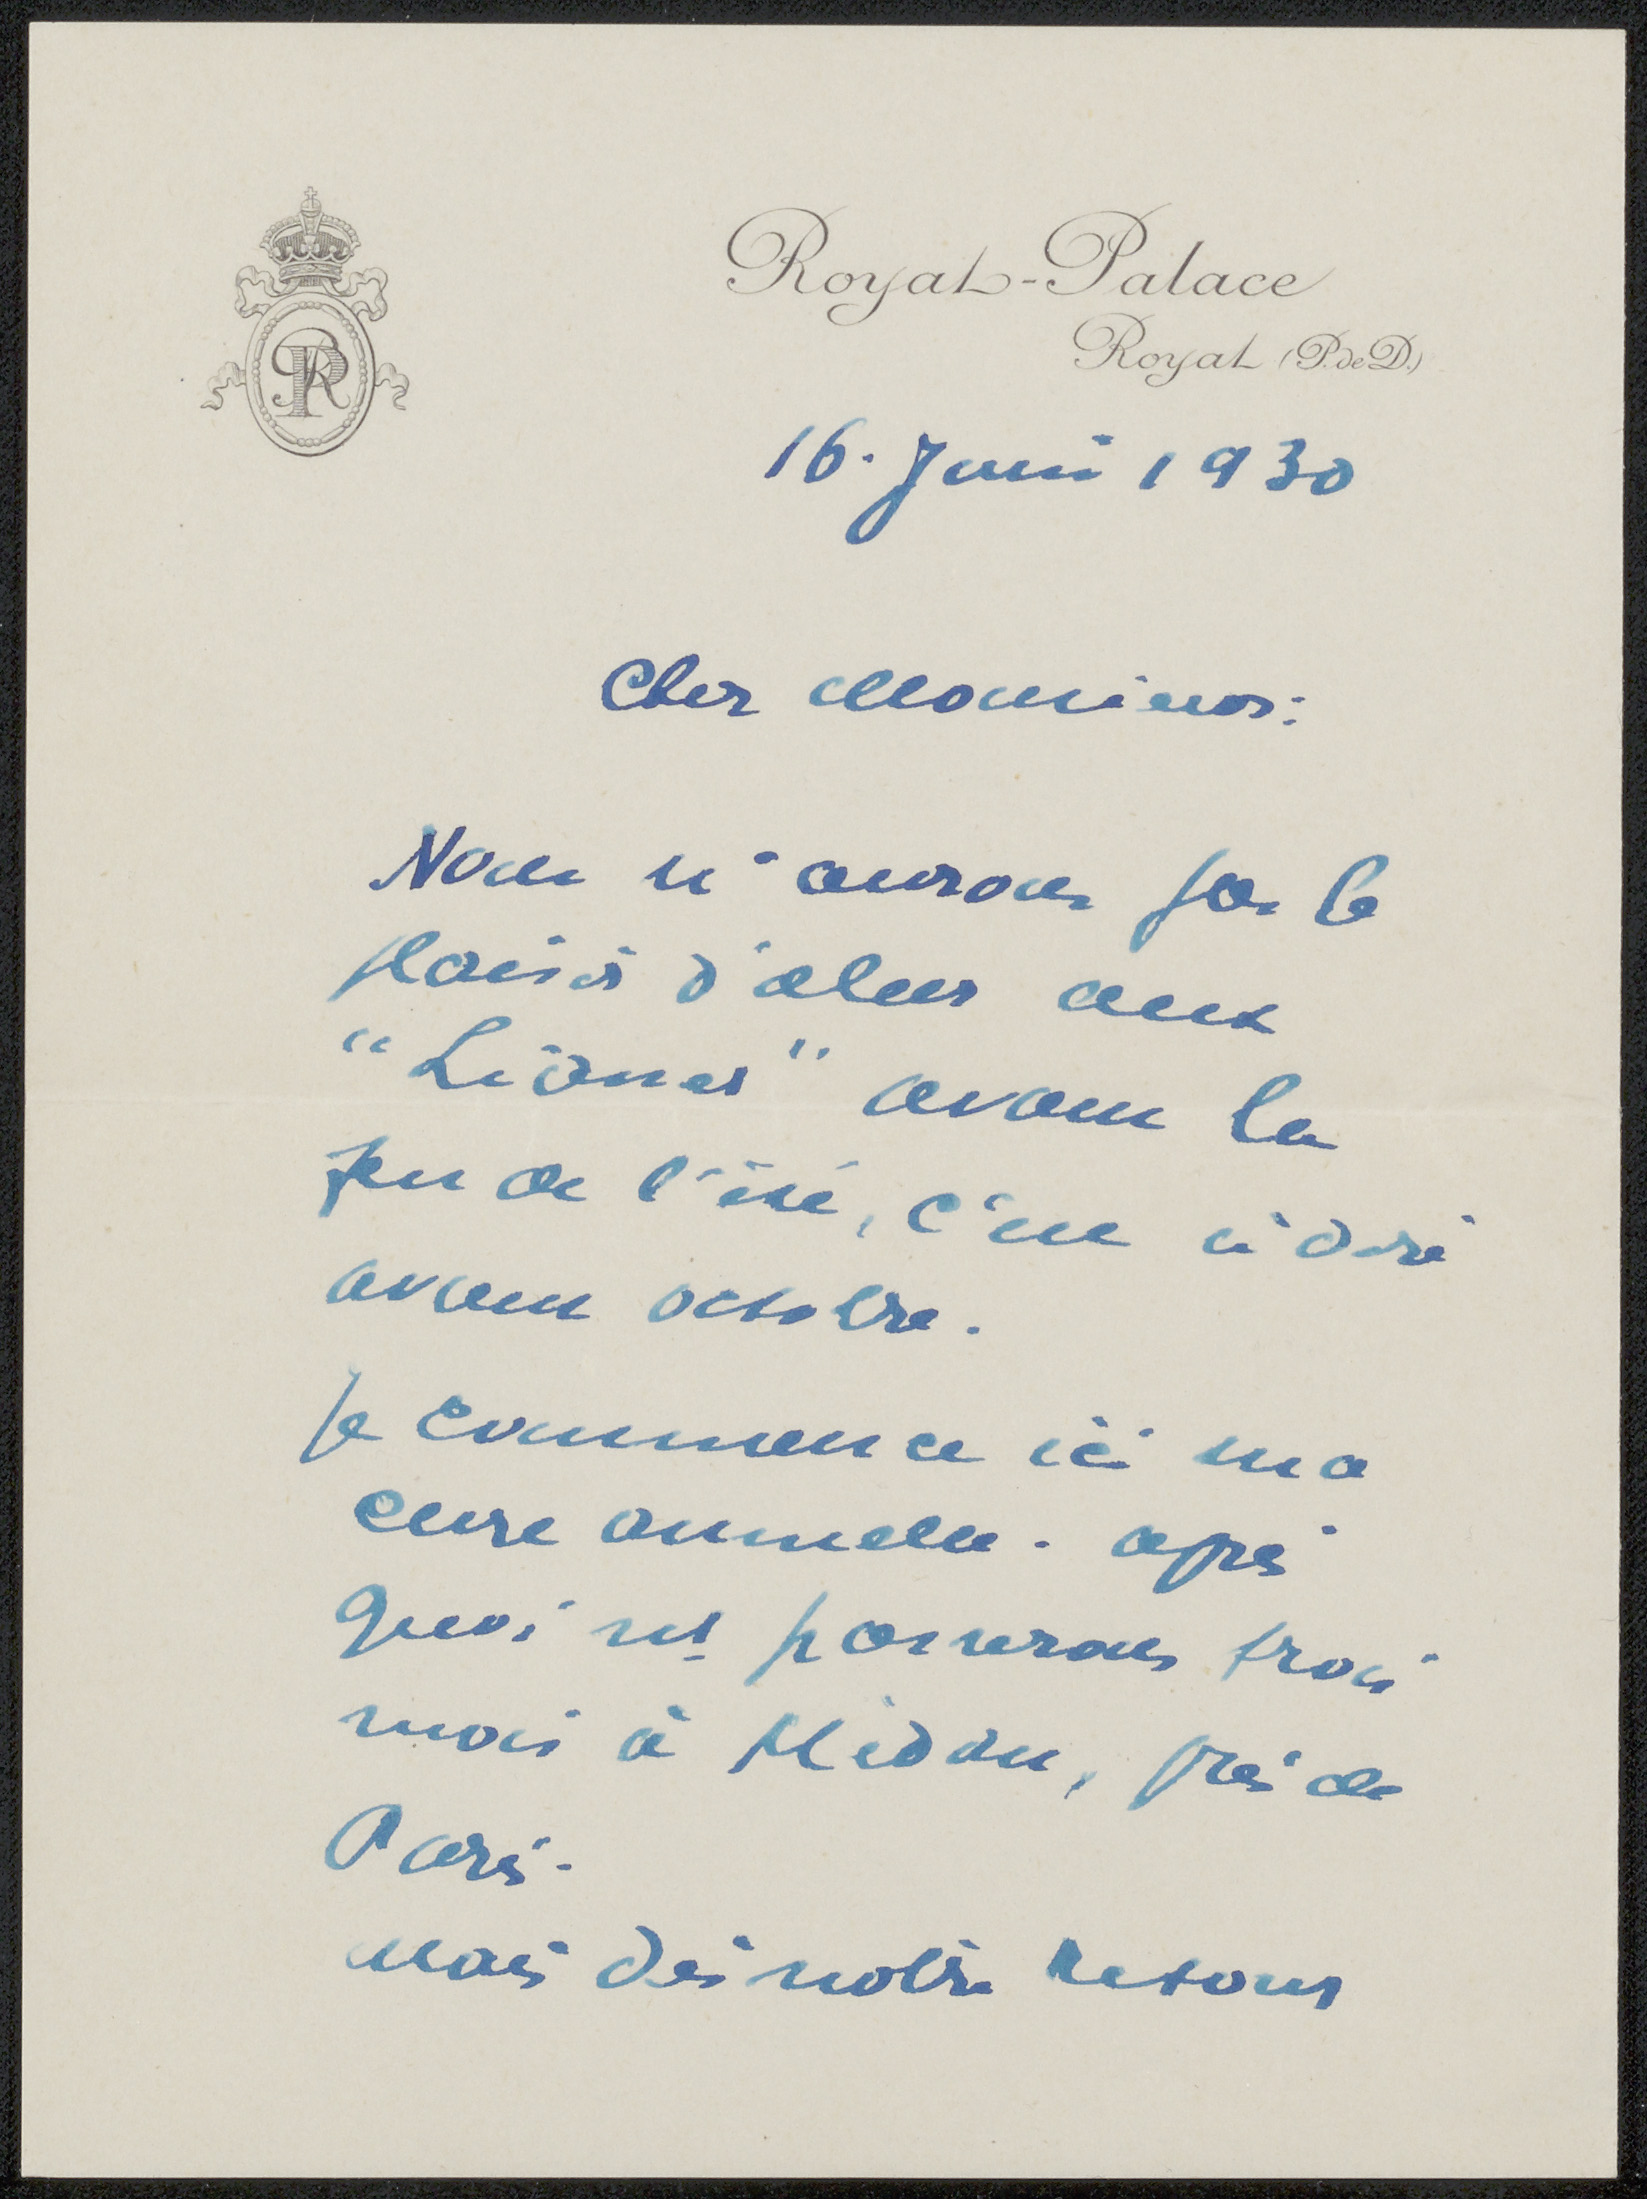 PR
Royat-Palace
Royat (P. de D.)
16. Juin 1930
Cher Monsieur:
Nous n'aurons pas le
plaisir d'aller aux
"Lianes" avant la
fin de l'été, c'est à dire
avant octobre.
Je commence ici ma
cure annuelle. après
quoi ns passerons trois
mois à Médan, près de
Paris.
Mais dès notre retour